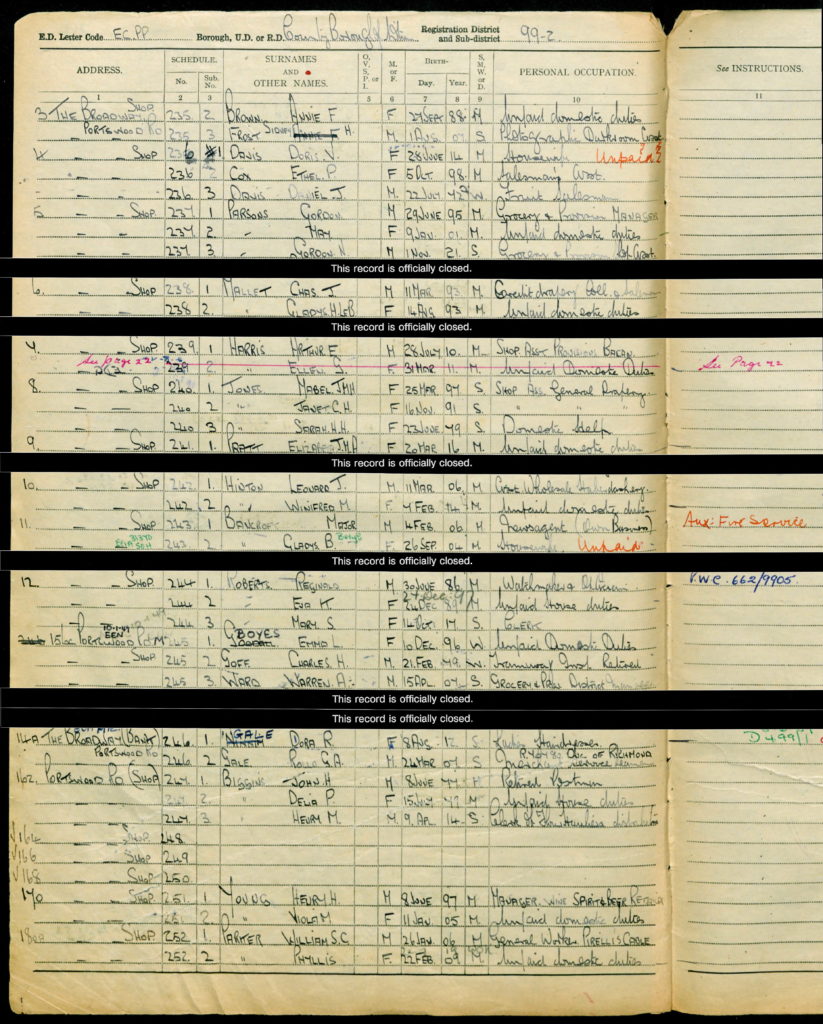 E.D. Letter Code EC.PP. Borough, U.D. or R.D. County Borough of Registration District and Sub-district 99-2
ADDRESS. SCHEDULE. No. Sub. No. SURNAMES AND OTHER NAMES. O., V., S., P. or I. M. or F. BIRTH- Day. Year. S., M., W. or D. PERSONAL OCCUPATION. See INSTRUCTIONS.
1 2 3 4 5 6 7 8 9 10 11
3 THE BROADWAY SHOP 235 2 BROWN ANNIE F F 27 SEPT 88 M Unpaid domestic duties
PORTSWOOD RD 235 3 FROST SIDNEY H. M 1 AUG 07 S. Photographic Darkroom Asst
4 — SHOP 236 1 DAVIS DORIS V. F 28 JUNE 14 M Housewife Unpaid
— — 236 2 COX ETHEL P. F 5 OCT. 98 M Saleswoman Asst.
— — 236 3 DAVIS DANIEL J. M 22 JULY 72 W. Fruit Salesman
5 — SHOP 237 1 PARSONS GORDON M 29 JUNE 95 M Grocery & Provision MANAGER
— — 237 2. " MAY F 9 JAN. 01 M. Unpaid domestic duties
237 3. " GORDON N M 1 NOV. 21 S. Grocery & Provision Asst.
This record is officially closed.
6. — SHOP 238 1 MALLET CHAS. J. M 11 MAR 93 M. Credit drapery Coll. &
238 2. " GLADYS H. LeB F 14 AUG 93 M Unpaid domestic duties
This record is officially closed.
7 — SHOP 239 1 HARRIS ARTHUR E. M 28 JULY 10. M SHOP ASST PROVISIONS BACON.
See page 22 239 2. " ELLEN S. F 31 MAR 11. M Unpaid Domestic Duties See Page 22
8. — SHOP 240 1. JONES MABEL J.M.H F 25 MAR 97 S. SHOP ASS. General Drapery.
— — 240 2 " JANET C.H. F 16 NOV. 91 S " "
— — 240 3 " SARAH H.H. F 23 JUNE 79 S. Domestic Help
9. — SHOP 241 1. PRATT ELIZABETH F 20 MAR 16 M Unpaid domestic duties
This record is officially closed.
10. — SHOP 242 1. HINTON LEONARD J. M. 11 MAR. 06 M. Asst Wholesale Haberdashery.
— — 242 2 " WINIFRED M. F. 4 FEB. 14 M Unpaid domestic duties
11. — SHOP 243 1 BANCROFT MAJOR M 4 FEB. 06 M Newsagent (Own Business) Aux: Fire Service
243 2. " GLADYS B. F. 26 SEP. 04 M. Housewife Unpaid
This record is officially closed.
12. — SHOP 244 1. ROBERTS REGINALD M. 30 JUNE 86 M. Watchmaker & Optician V.W.C. 662/9905
— — 244 2 " EVA K F 24 DEC 89 M Unpaid House duties
244 3 " MARY S. F 14 OCT. 17 S. CLERK
156a PORTSWOOD RD 245 1. BOYES EMMA L. F 10 DEC. 96 W Unpaid Domestic Duties
— SHOP 245 2 GOFF CHARLES H. M 21 FEB. 79 W. Tramway Inst. Retired
245 3. WARD WARREN. A. M 15 APL 07 S. GROCERY & PROV.
This record is officially closed.
This record is officially closed.
14A THE BROADWAY (BANK) 246 1. GALE DORA R. F 8 AUG. 12 S. Ladies Hairdresser
PORTSWOOD RD 246 2 GALE G.A. M 24 MAR 07 S
162, PORTSWOOD RD (SHOP) 247 1. BIGGINS JOHN H M 8 JUNE 77 M Retired Postman
247 2. " DELIA P. F 15 JULY 77 M Unpaid House duties
247 3. " HENRY M. M 9 AP. 14 S.
√164 — SHOP 248
√166 — SHOP 249
√168 — SHOP 250
170 — SHOP 251 1 YOUNG HENRY H. M 8 JUNE 97 M MANAGER. WINE SPIRIT & BEER RETAILER
251 2. " VIOLA M. F 11 JAN. 05 M. Unpaid domestic duties
180a — SHOP 252 1. PARTER WILLIAM S.C M 26 JAN. 06 M General Worker PIRELLIS CABLE
252. 2 " PHYLLIS F. 22 FEB. 09 M. Unpaid domestic duties